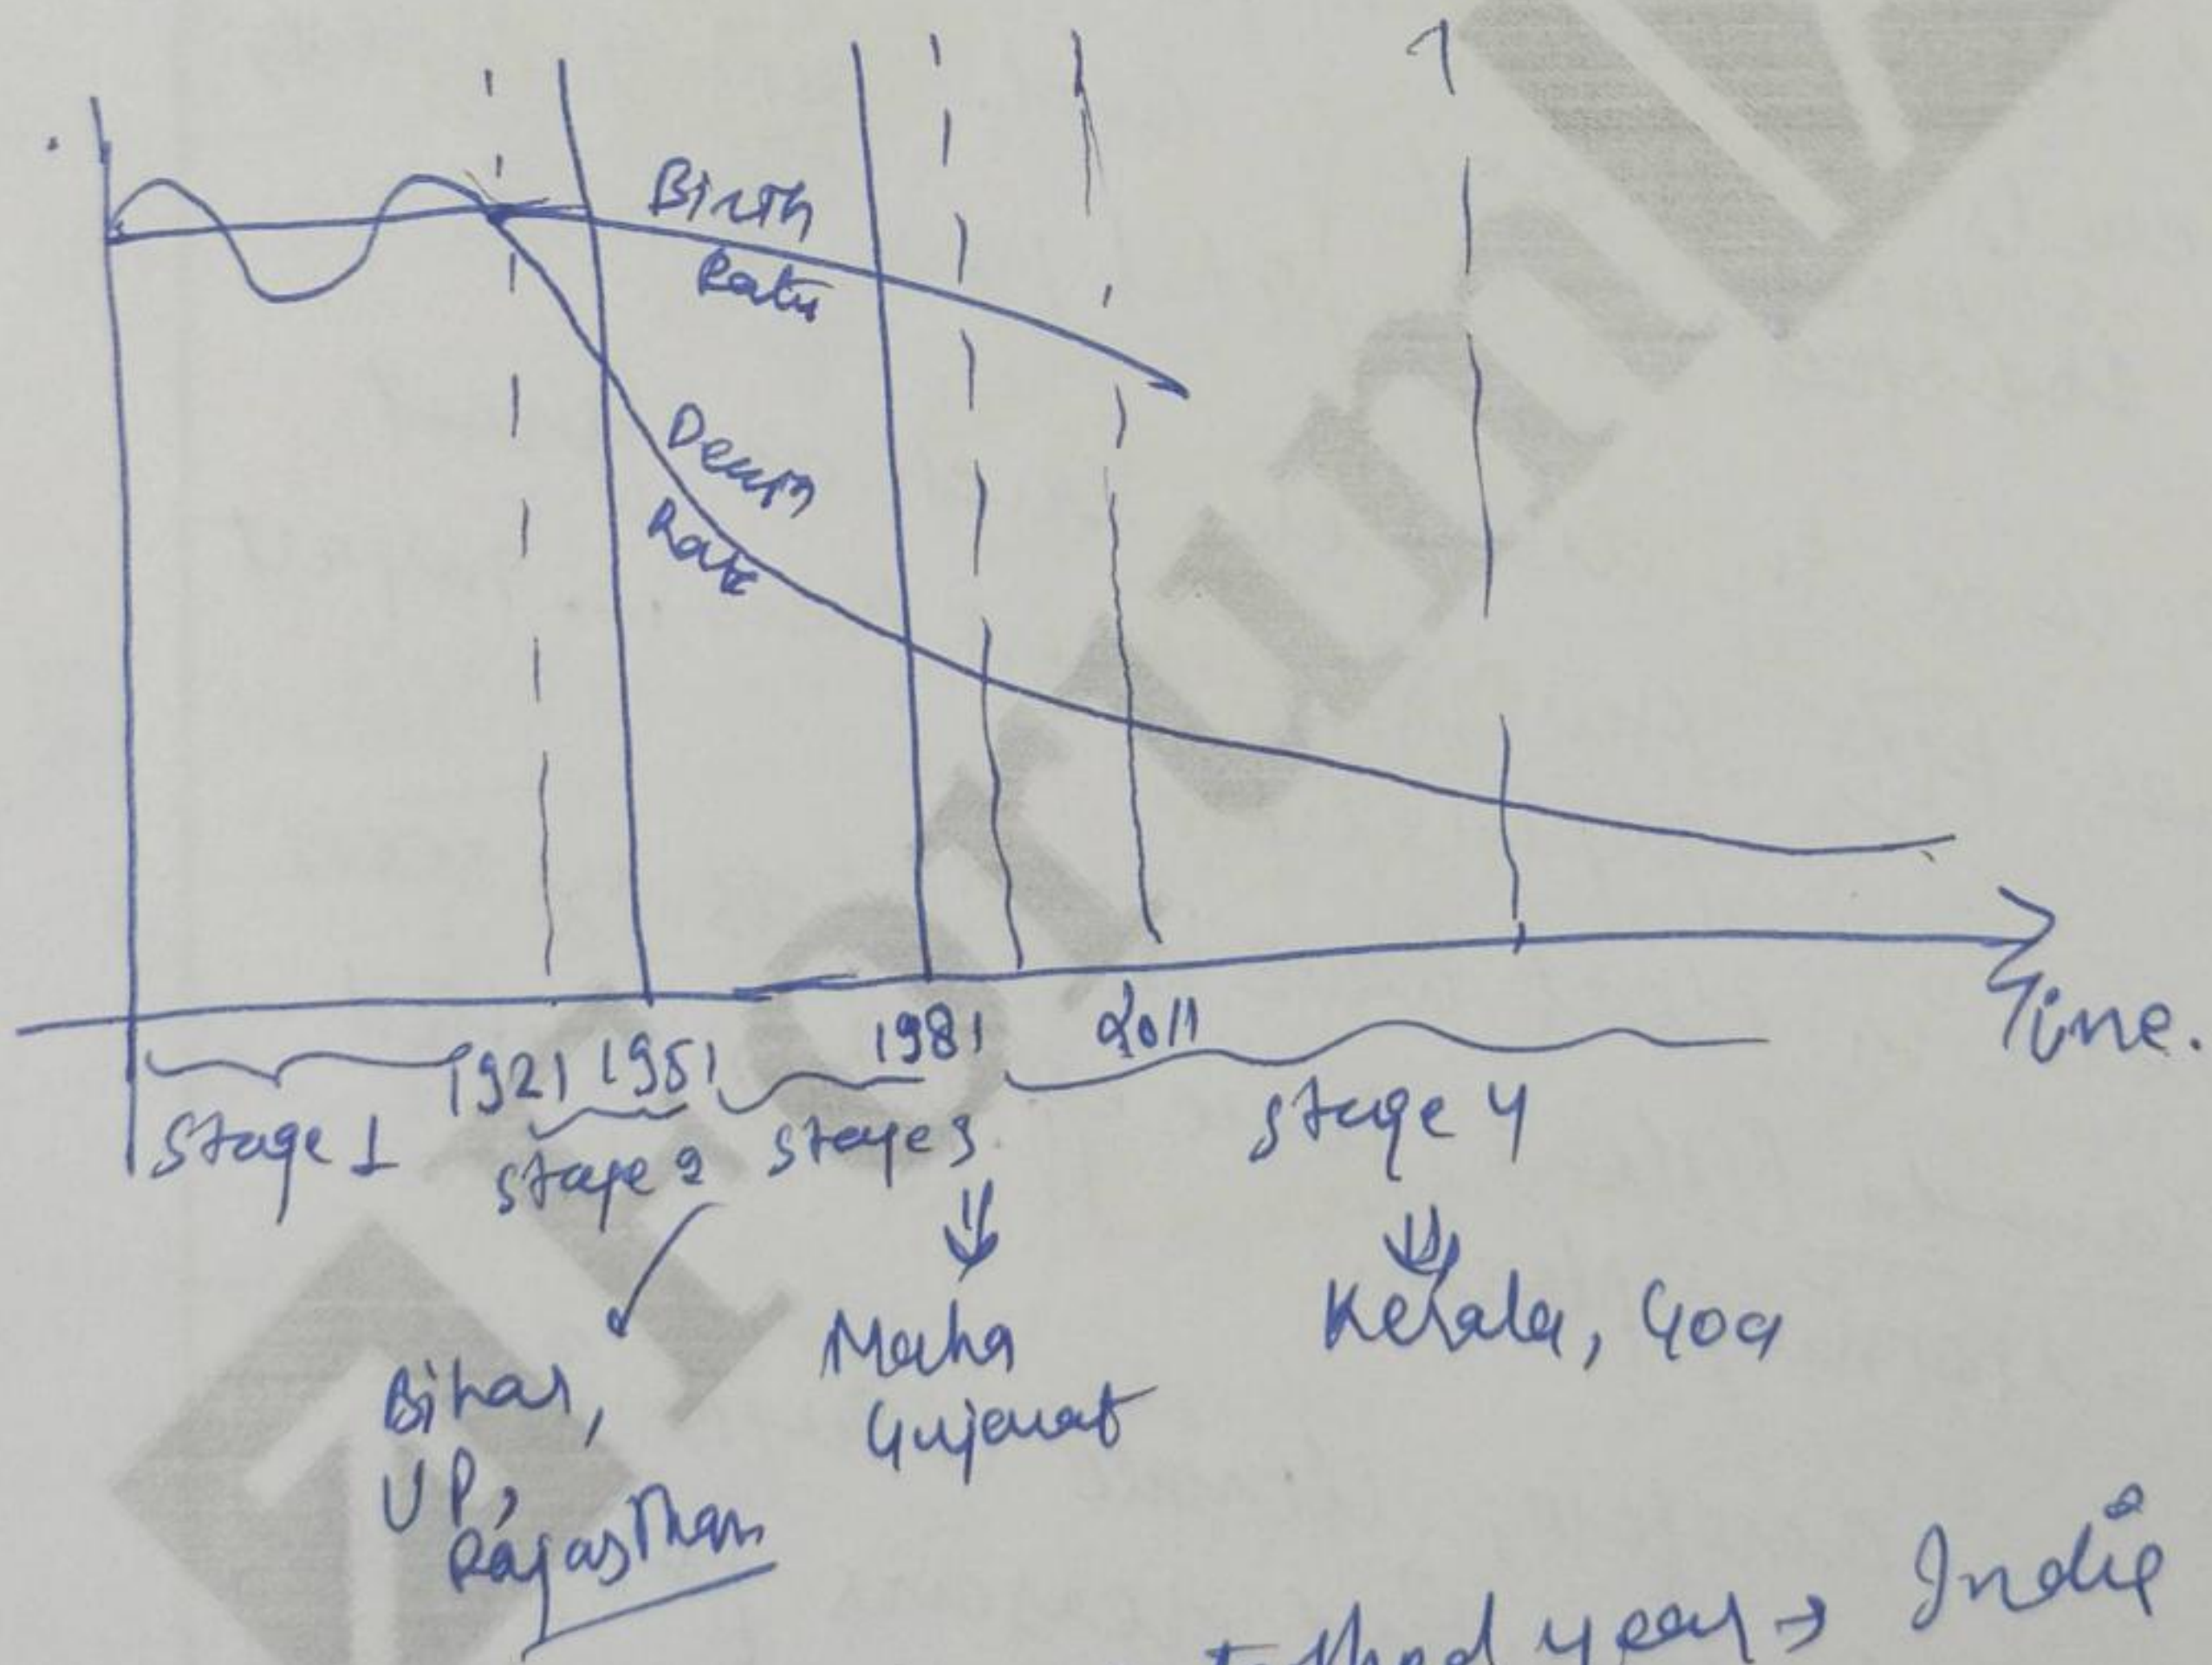 Birth
Rate
Death
Rate
1921 1951 1981 2011
Time.
Stage 1 Stage 2 Stage 3 Stage 4
Bihar,
UP,
Rajasthan
Maha
Gujarat
Kerala, Goa
year → India
ForumIA